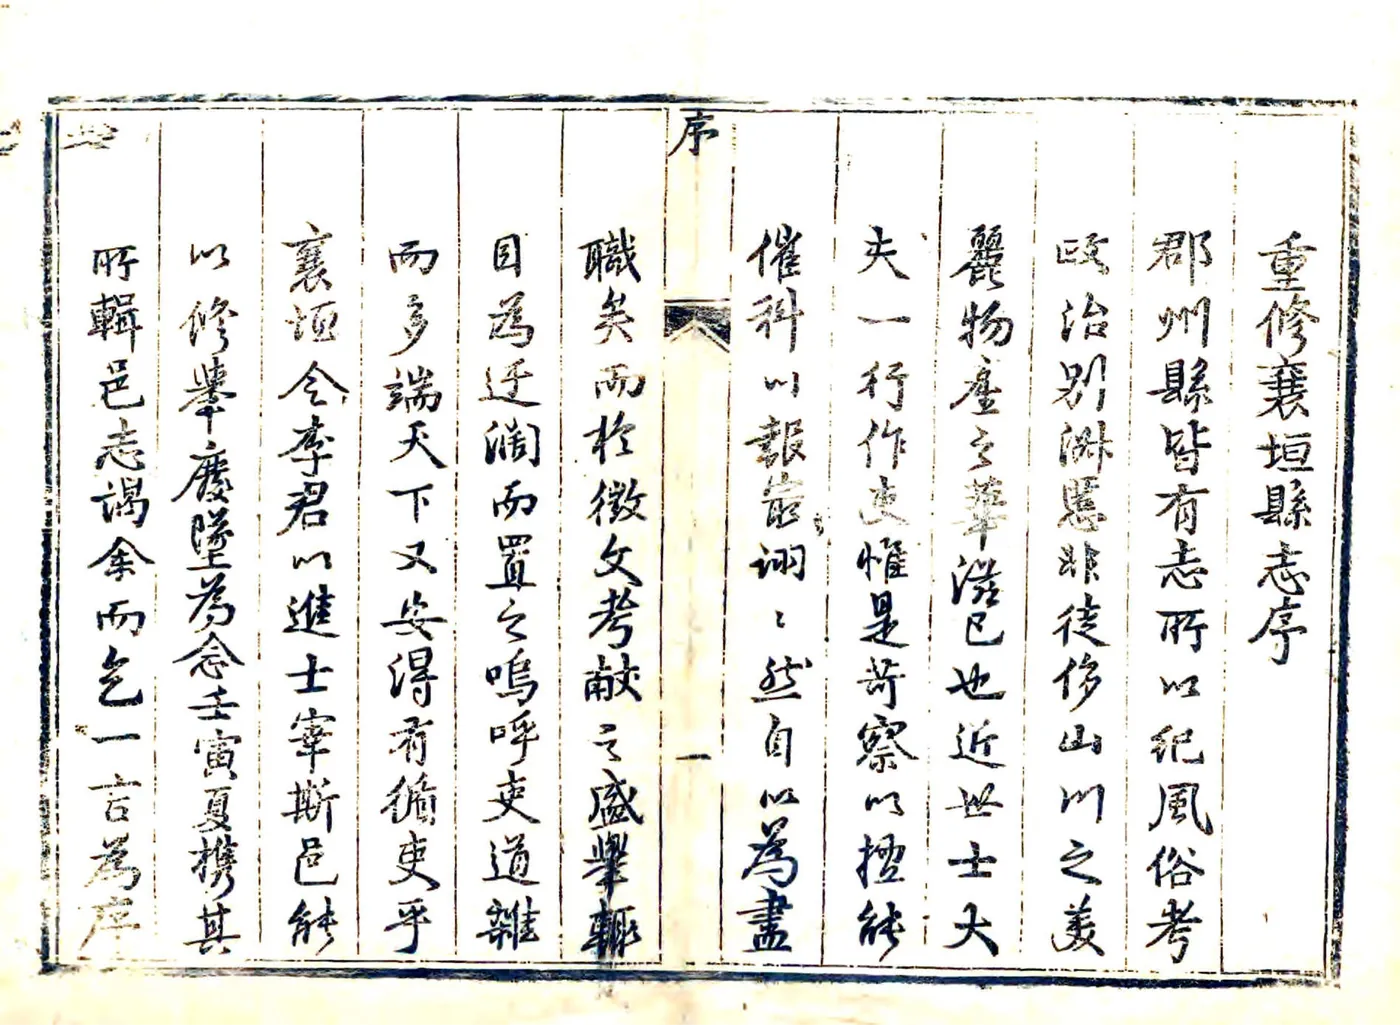 重修襄垣縣志序
郡州縣皆有志所以紀風俗考
政治別淑慝非徒侈山川之美
麗物產之華滋已也近世士大
夫一行作吏惟是苛察以擅能
催科以報最詡〻然自以為盡
職矣而於徵文考獻之盛舉輒
目為迂濶而置之嗚呼吏道雜
而多端天下又安得有循吏乎
襄垣令李君以進士宰斯邑能
以修舉廢墜為念壬寅夏携其
所輯邑志謁余而乞一言為序
序
一